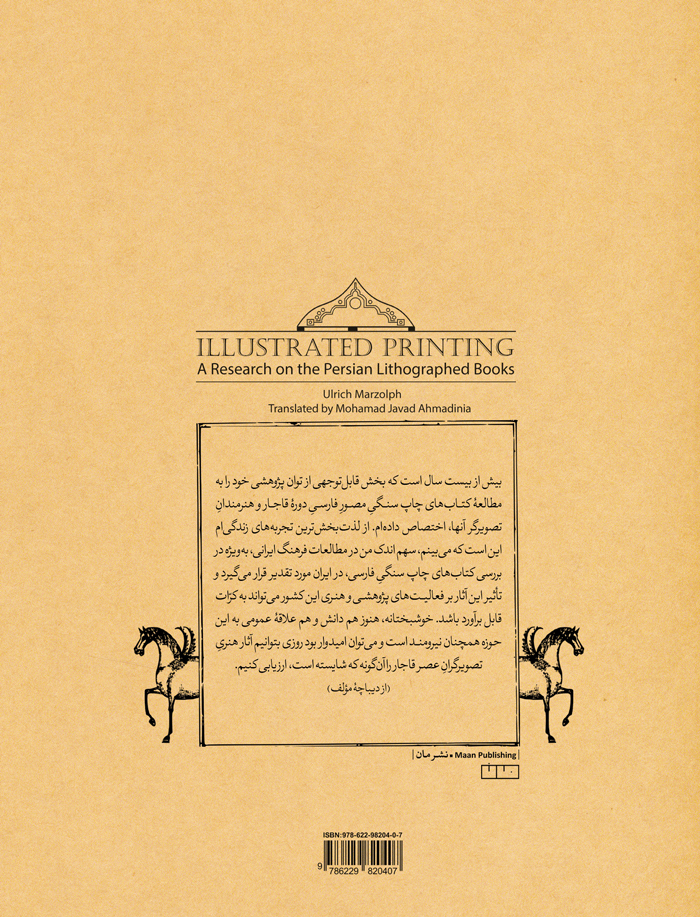 ILLUSTRATED PRINTING
A Research on the Persian Lithographed Books
Ulrich Marzolph
Translated by Mohamad Javad Ahmadinia
بیش از بیست سال است که بخش قابل‌توجهی از توان پژوهشی خود را به
مطالعهٔ کتاب‌های چاپ سنگیِ مصورِ فارسیِ دورهٔ قاجار و هنرمندانِ
تصویرگر آنها، اختصاص داده‌ام. از لذت‌بخش‌ترین تجربه‌های زندگی‌ام
این است که می‌بینم، سهم اندک من در مطالعات فرهنگ ایرانی، به‌ویژه در
بررسی کتاب‌های چاپ سنگیِ فارسی، در ایران مورد تقدیر قرار می‌گیرد و
تأثیر این آثار بر فعالیت‌های پژوهشی و هنری این کشور می‌تواند به کرّات
قابل برآورد باشد. خوشبختانه، هنوز هم دانش و هم علاقهٔ عمومی به این
حوزه همچنان نیرومند است و می‌توان امیدوار بود روزی بتوانیم آثار هنریِ
تصویرگرانِ عصر قاجار را آن‌گونه که شایسته است، ارزیابی کنیم.
(از دیباچهٔ مؤلف)
| نشر مان • Maan Publishing |
ISBN:978-622-98204-0-7
9 786229 820407